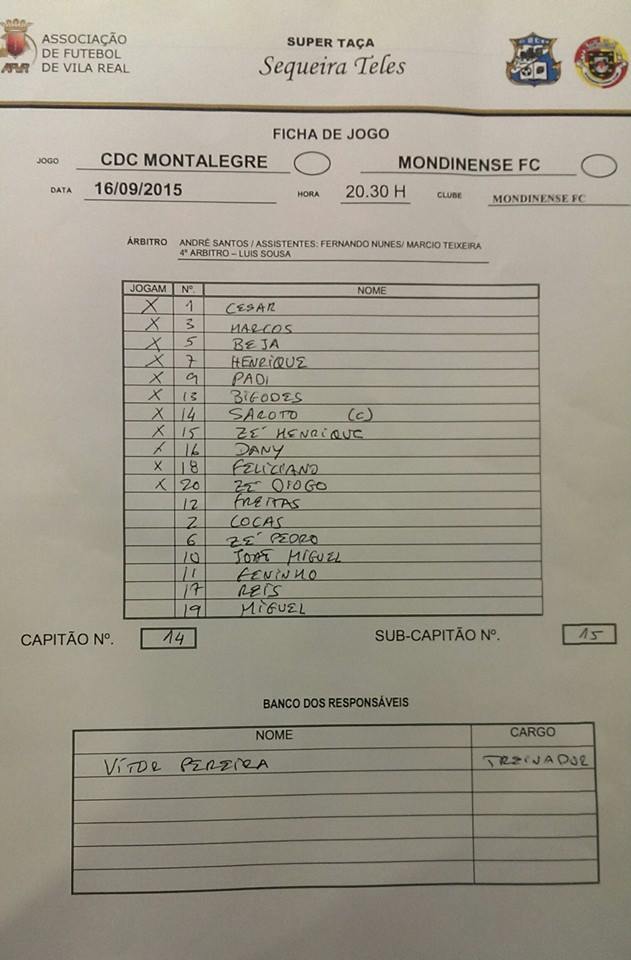 ASSOCIAÇÃO
DE FUTEBOL
DE VILA REAL
AFVR
SUPER TAÇA
Sequeira Teles
FICHA DE JOGO
JOGO CDC MONTALEGRE MONDINENSE FC
DATA 16/09/2015 HORA 20.30 H CLUBE MONDINENSE FC
ÁRBITRO ANDRÉ SANTOS / ASSISTENTES: FERNANDO NUNES/ MARCIO TEIXEIRA
4º ARBITRO – LUIS SOUSA
JOGAM Nº. NOME
X 1 CESAR
X 3 MARCOS
X 5 BEJA
X 7 HENRIQUE
X 9 PADI
X 13 BIGODES
X 14 SAROTO (C)
X 15 ZÉ HENRIQUE
X 16 DANY
X 18 FELICIANO
X 20 ZÉ DIOGO
12 FREITAS
2 COCAS
6 ZÉ PEDRO
10 JOSÉ MIGUEL
11 FENINHO
17 REIS
19 MIGUEL
CAPITÃO Nº. 14 SUB-CAPITÃO Nº. 15
BANCO DOS RESPONSÁVEIS
NOME CARGO
VÍTOR PEREIRA TREINADOR